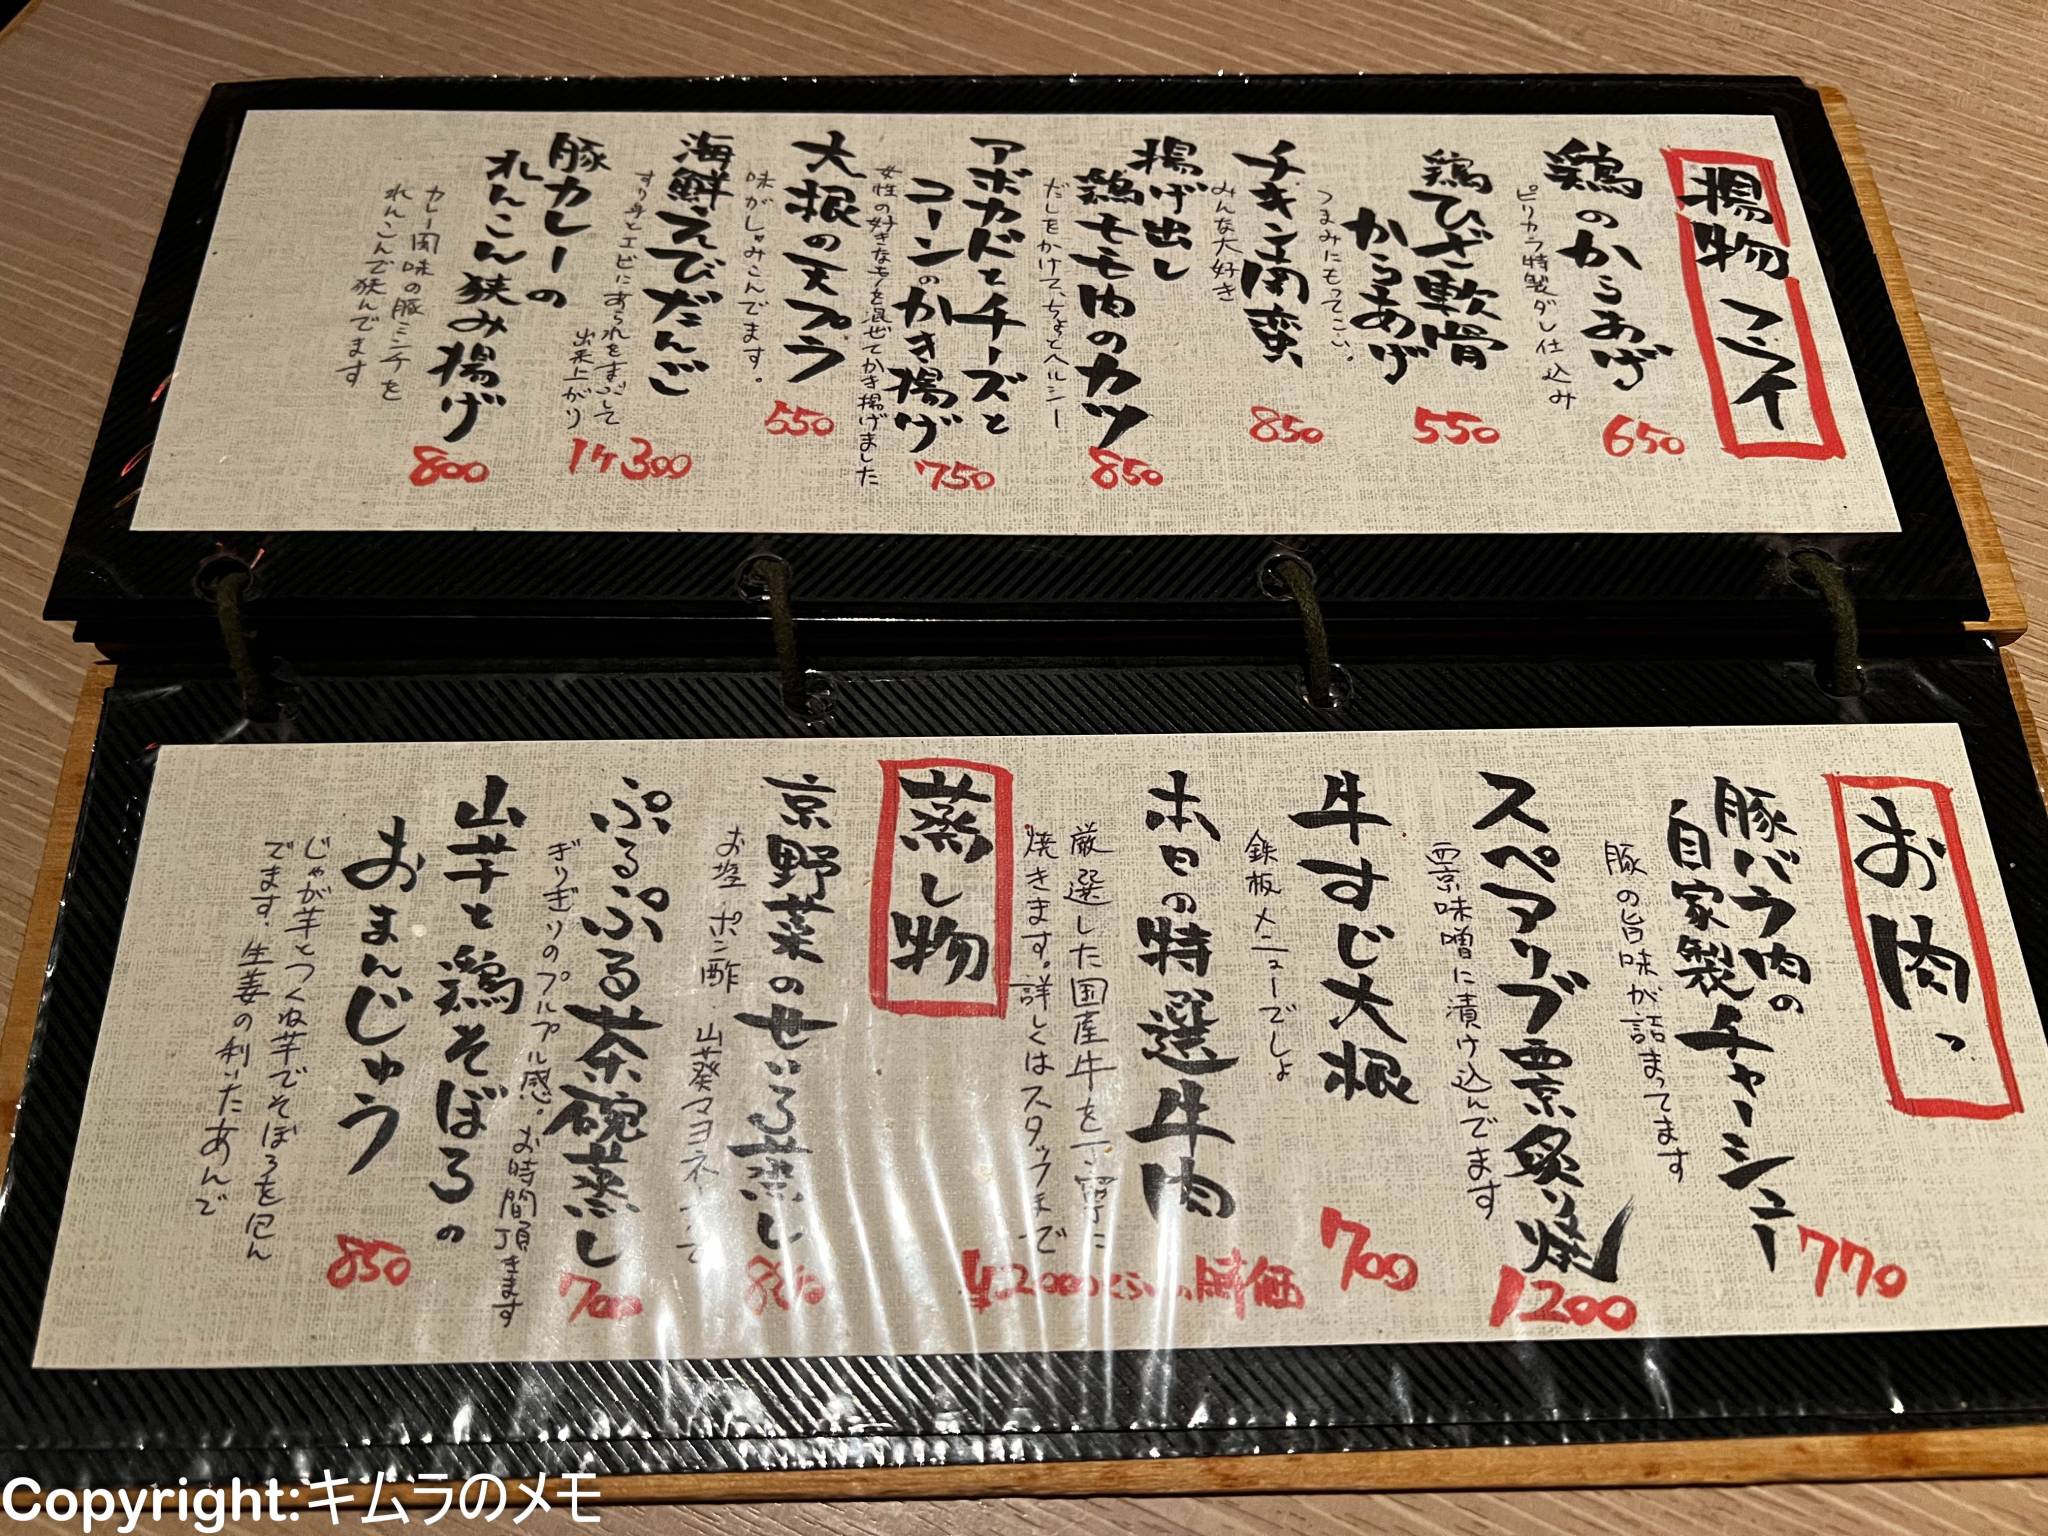 揚物フライ
鶏のからあげ
ピリカラ特製ダレ仕込み
650
鶏ひざ軟骨
からあげ
つまみにもってこい。
550
チキン南蛮
みんな大好き
850
揚げ出し
鶏モモ肉のカツ
だしをかけて、ちょとヘルシー
850
アボカドとチーズと
コーンのかき揚げ
女性の好きなモノを混ぜてかき揚げました
750
大根の天プラ
味がしゅみこんでます。
550
海鮮えびだんご
すり身とエビにあられをまぶして
出来上がり
1ケ300
豚カレーの
れんこん狭み揚げ
カレー風味の豚ミンチを
れんこんで狭んでます
800
お肉っ
豚バラ肉の
自家製チャーシュー
豚の旨味が詰まってます
770
スペアリブ西京炙り焼
西京味噌に漬け込んでます
1200
牛すじ大根
鉄板メニューでしょ
700
本日の特選牛肉
厳選した国産牛を丁寧に
焼きます。詳しくはスタッフまで
¥2000くらいの時価
蒸し物
京野菜のせいろ蒸し
お塩・ポン酢・山葵マヨネーズで
ぷるぷる茶碗蒸し
ぎりぎりのプルプル感。お時間頂きます
700
山芋と鶏そぼろの
おまんじゅう
じゃが芋とつくね芋でそぼろを包ん
でます。生姜の利いたあんで
850
Copyright:キムラのメモ